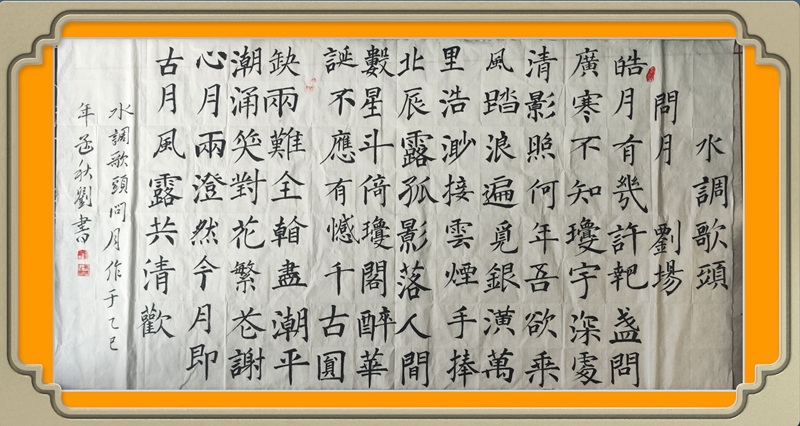 水調歌頭
問月 劉場
皓月有幾許靶盏問
廣寒不知瓊宇深處
清影照何年吾欲乘
風踏浪遍覓銀潢萬
里浩渺接雲煙手捧
北辰露孤影落人間
數星斗倚瓊閣醉華
誕不應有憾千古圓
缺兩難全翰盡潮平
潮涌笑對花繁芲謝
心月兩澄然今月即
古月風露共清歡
水調歌頭問月作于乙巳
年孟秋劉書